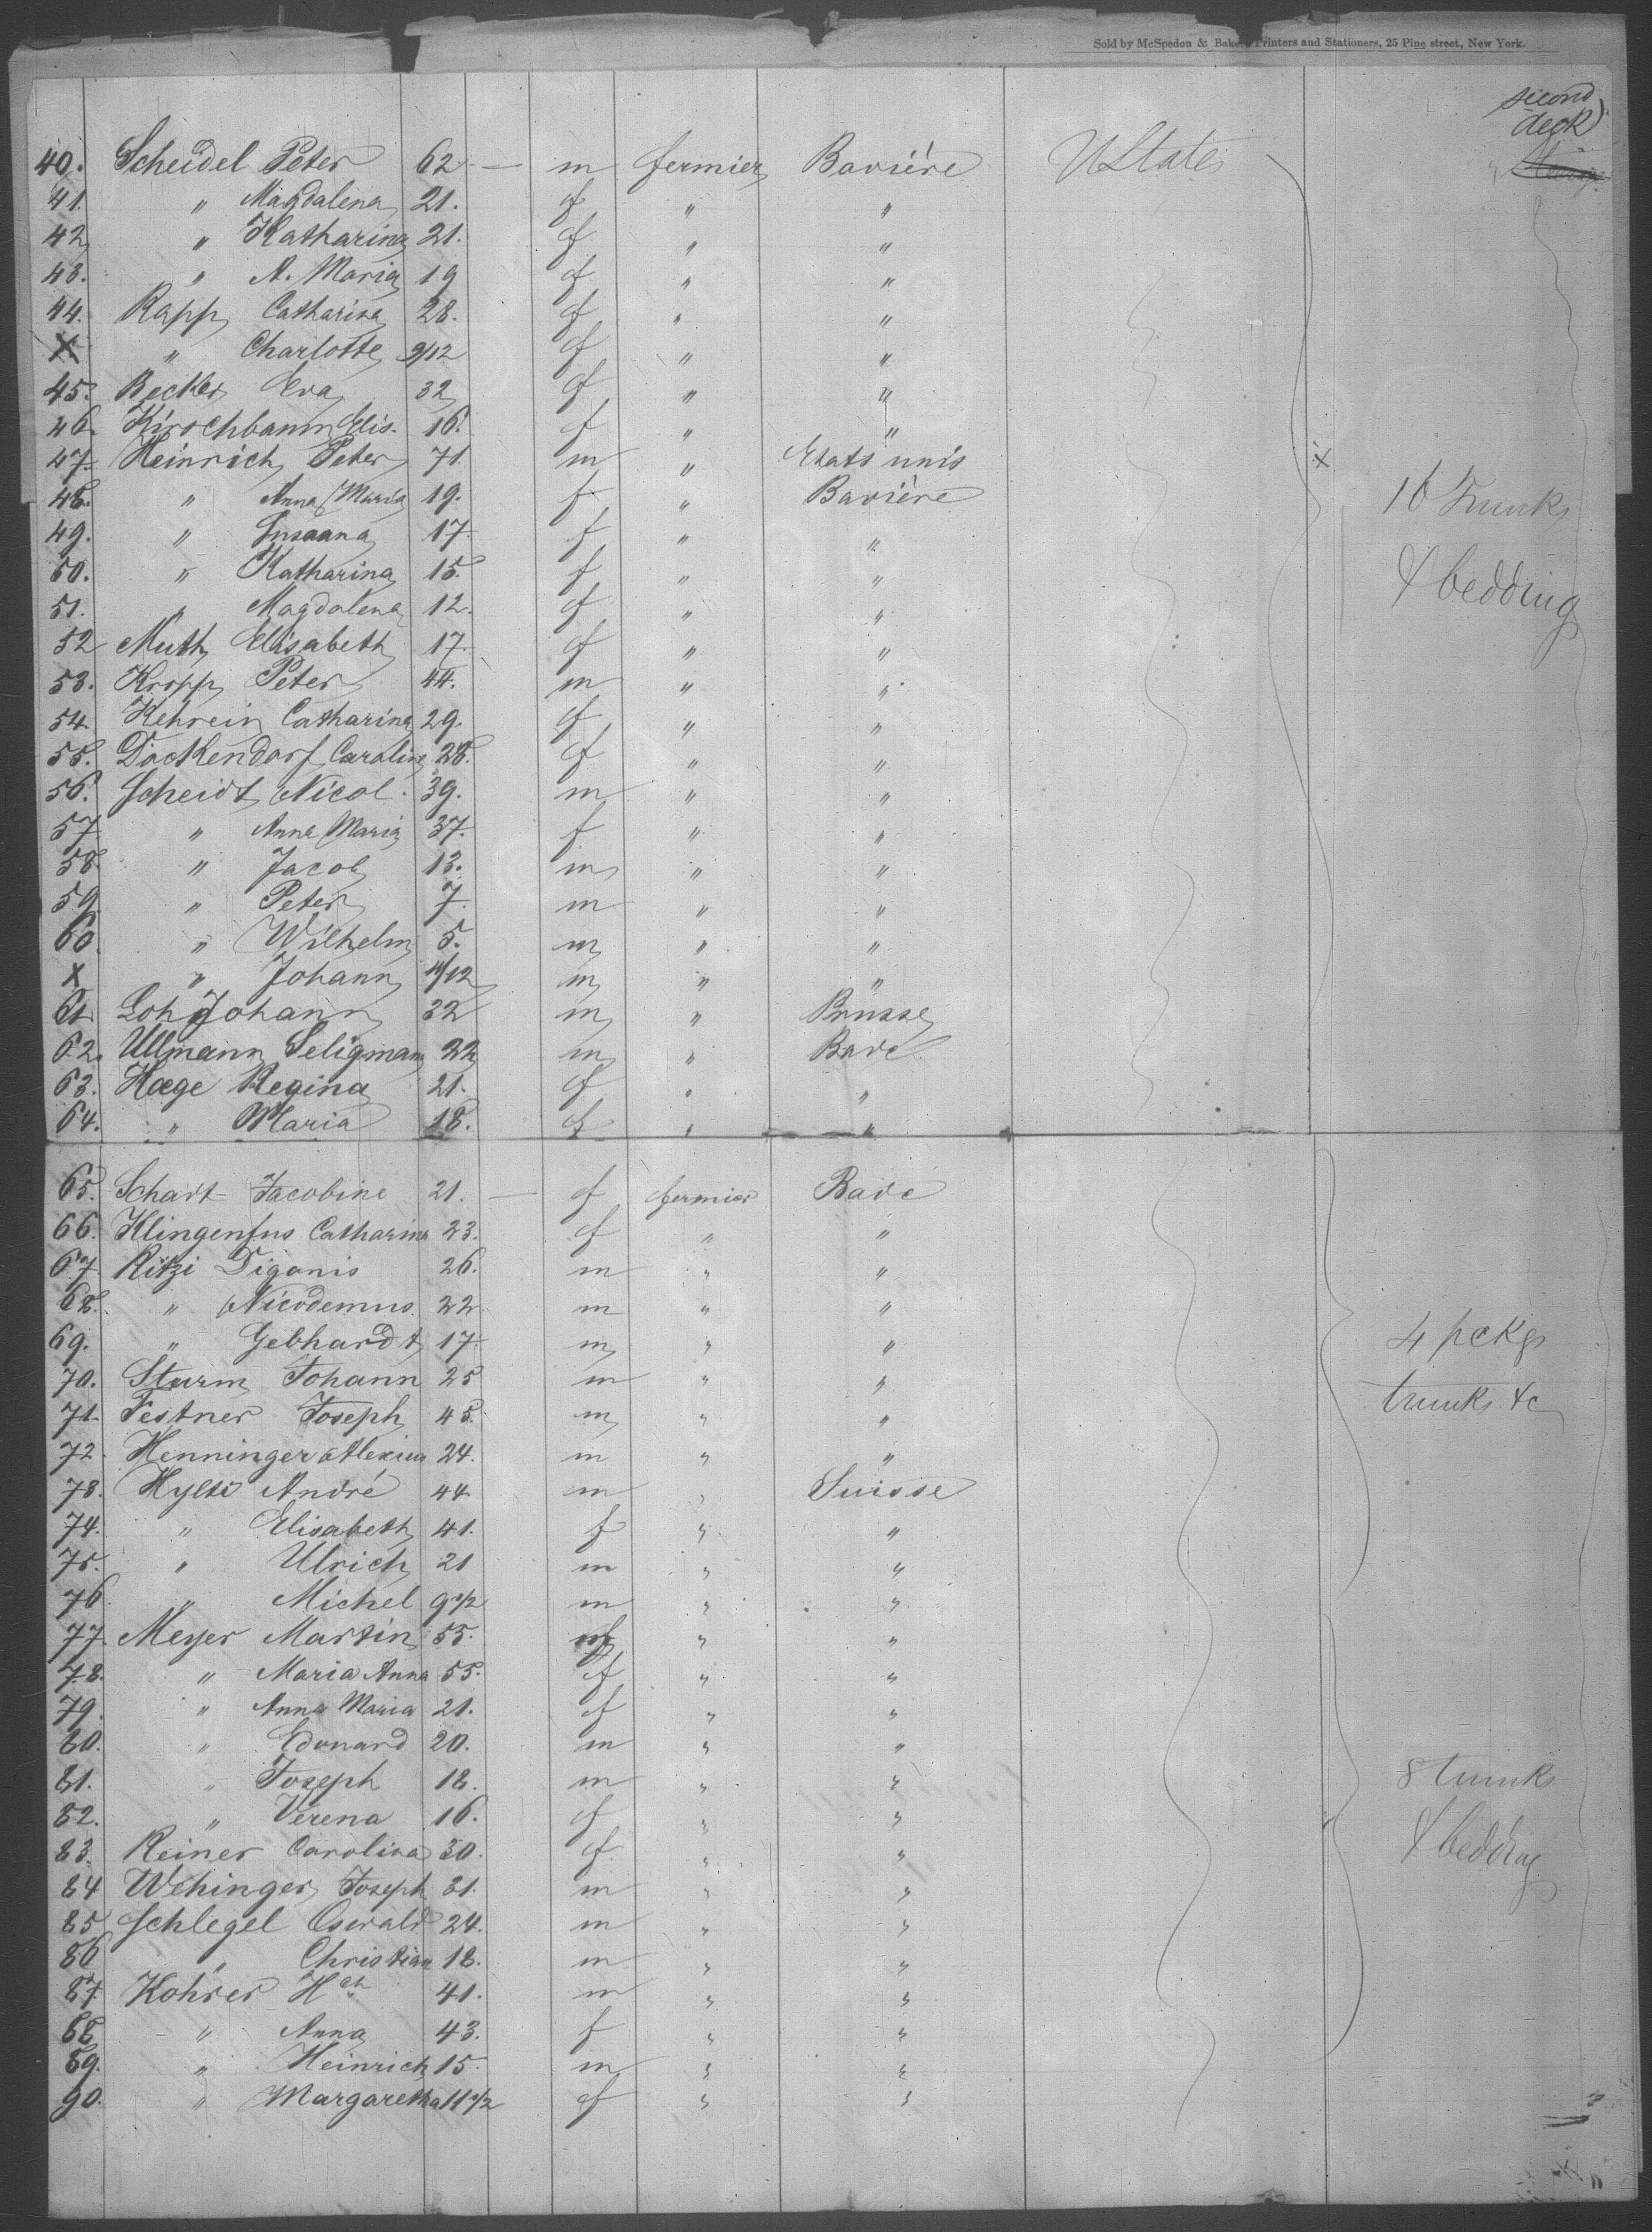 Sold by McSpedon & Baker, Printers and Stationers, 25 Pine street, New York.
second
deck
40. Scheidel Peter 62 — m fermier Bavière UStates
41. " Magdalena 21. f " "
42 " Katharina 21. f " "
43. " A. Maria 19 f " "
44. Rapp Catharina 28. f " "
X " Charlotte 9/12 f " "
45. Becker Eva 32 f " "
46. Kirschbaum Elis. 16. f " "
47. Heinrich Peter 71. m " Etats unis X
48. " Anna Maria 19. f " Bavière 16 Trunks
49. " Susanna 17. f " "
50. " Katharina 15. f " " & bedding
51. " Magdalena 12. f " "
52 Muth Elisabeth 17. f " "
53. Kropp Peter 44. m " "
54. Kehrein Catharina 29. f " "
55. Dockendorf Caroline 28. f " "
56. Scheidt Nicol. 39. m " "
57 " Anna Maria 37. f " "
58. " Jacob 13. m " "
59. " Peter 7. m " "
60. " Wilhelm 5. m " "
X " Johann 11/12 m " "
61. Loh Johann 32 m " Prusse
62. Ullmann Seligmann 22 m " Bade
63. Hæge Regina 21. f " "
64. " Maria 18. f " "
65. Schart Jacobine 21. — f fermier Bade
66. Klingenfus Catharina 23. f " "
67. Ritzi 26. m " "
68. " Nicodemus 22 m " "
69. " Gebhardt 17. m " " 4 pckgs
70. Sturm Johann 25 m " "
71. Festner Joseph 45. m " " trunks &c
72. Henninger Alexius 24. m " "
73. André 44 m " Suisse
74. " Elisabeth 41. f " "
75. " Ulrich 21 m " "
76 " Michel 9 1/2 m " "
77. Meyer Martin 55. m " "
78. " Maria Anna 55. f " "
79. " Anna Maria 21. f " "
80. " Edouard 20. m " "
81. " Joseph 18. m " " 8 trunks
82. " Verena 16. f " "
83. Reiner Carolina 30. f " " & bedding
84 Wehinger Joseph 31. m " "
85 Schlegel Oswald 24. m " "
86 " Christian 18. m " "
87. Kohrer Hch 41. m " "
88 " Anna 43. f " "
89. " Heinrich 15. m " "
90. " Margaretha 11 1/2 f " "